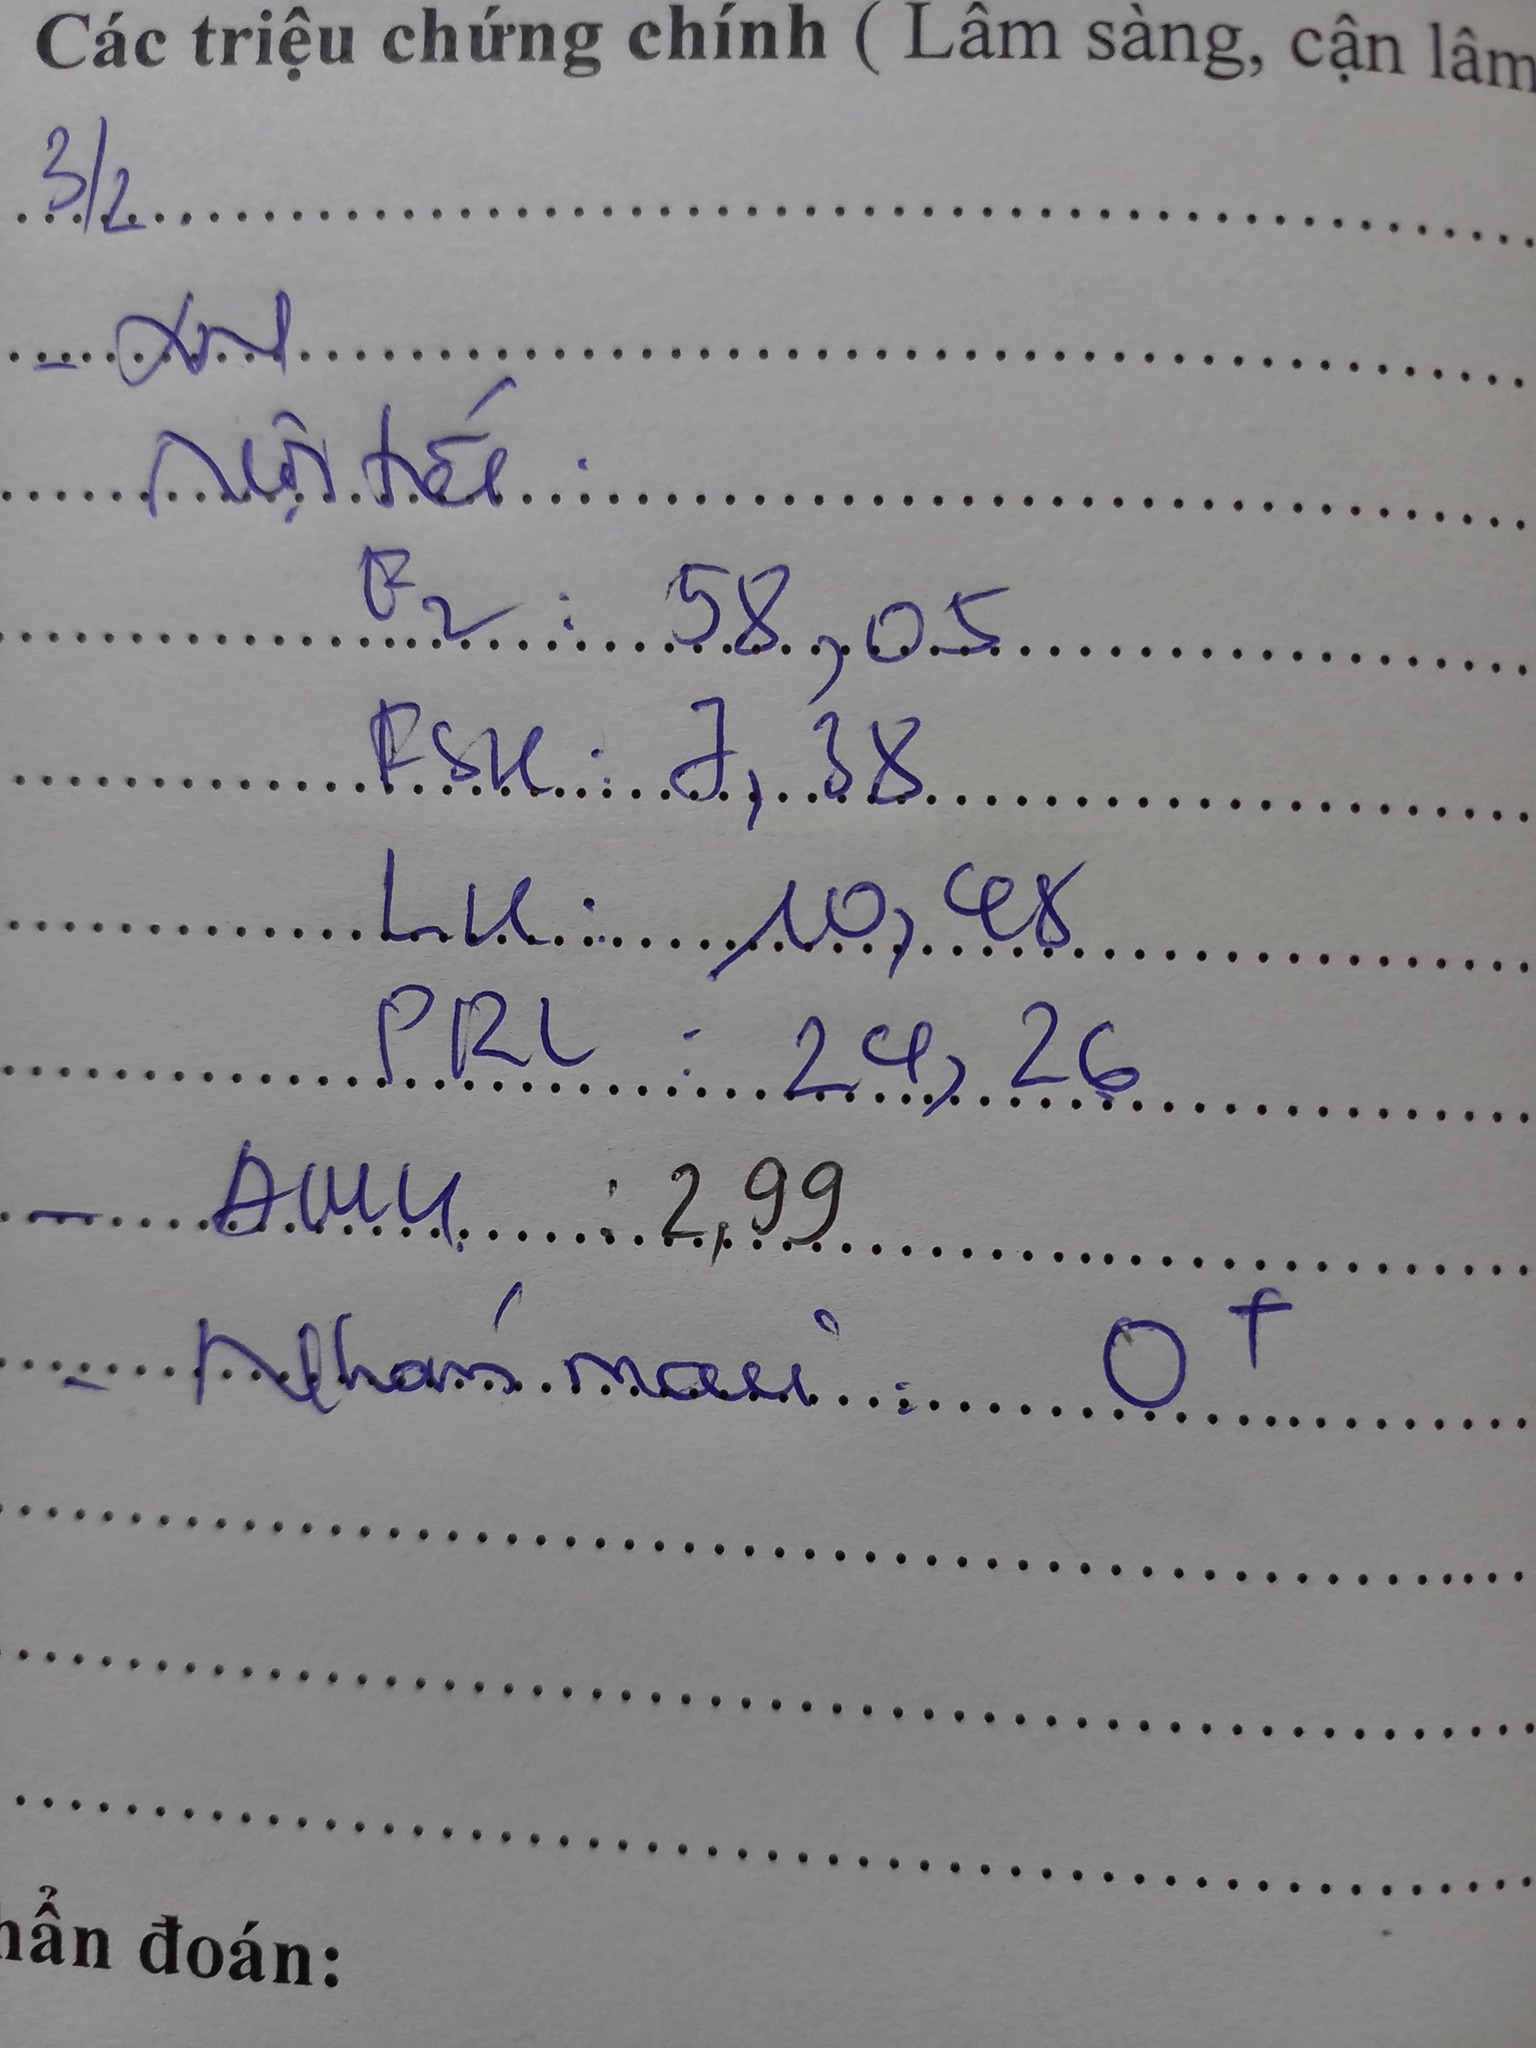 Các triệu chứng chính ( Lâm sàng, cận lâm
3/2
- XN
Nội tiết :
E2 : 58,05
FSH : 7,38
LH : 10,48
PRL : 24,26
- AMH : 2,99
- Nhóm máu : O+
hẩn đoán: